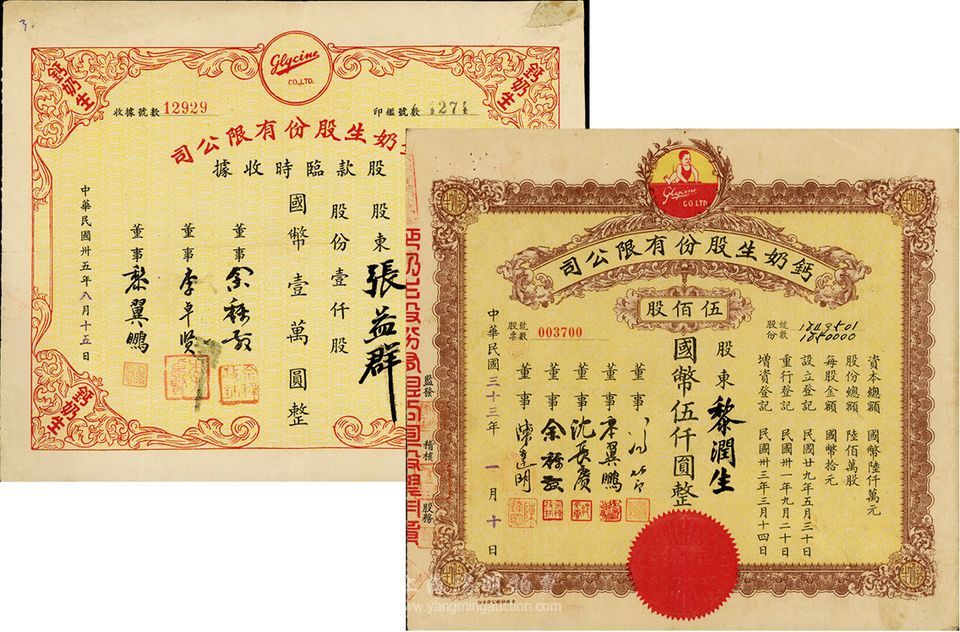 3
Glycine
CO.,LTD.
鈣奶生
鈣奶生
收據號數 12929
印鑑號數
奶生股份有限公司
股款臨時收據
股東 張益群
股份壹仟股
國幣壹萬圓整
董事 余
董事 李卓賢
董事 黎翼鵬
中華民國卅五年八月十五日
鈣奶生
Glycine
CO.LTD
鈣奶生股份有限公司
伍佰股
股票號數 003700
股份號數
1040000
資本總額 國幣陸仟萬元
股份總額 陸佰萬股
每股金額 國幣拾元
設立登記 民國廿九年五月三十日
重行登記 民國卅一年九月二十日
增資登記 民國卅三年三月十四日
股東 黎潤生
國幣伍仟圓整
董事
董事 翼鵬
董事 沈長賡
董事 余
董事 陳達明
中華民國三十三年一月十日
監發
稽核
股務
www.yangmingauction.com